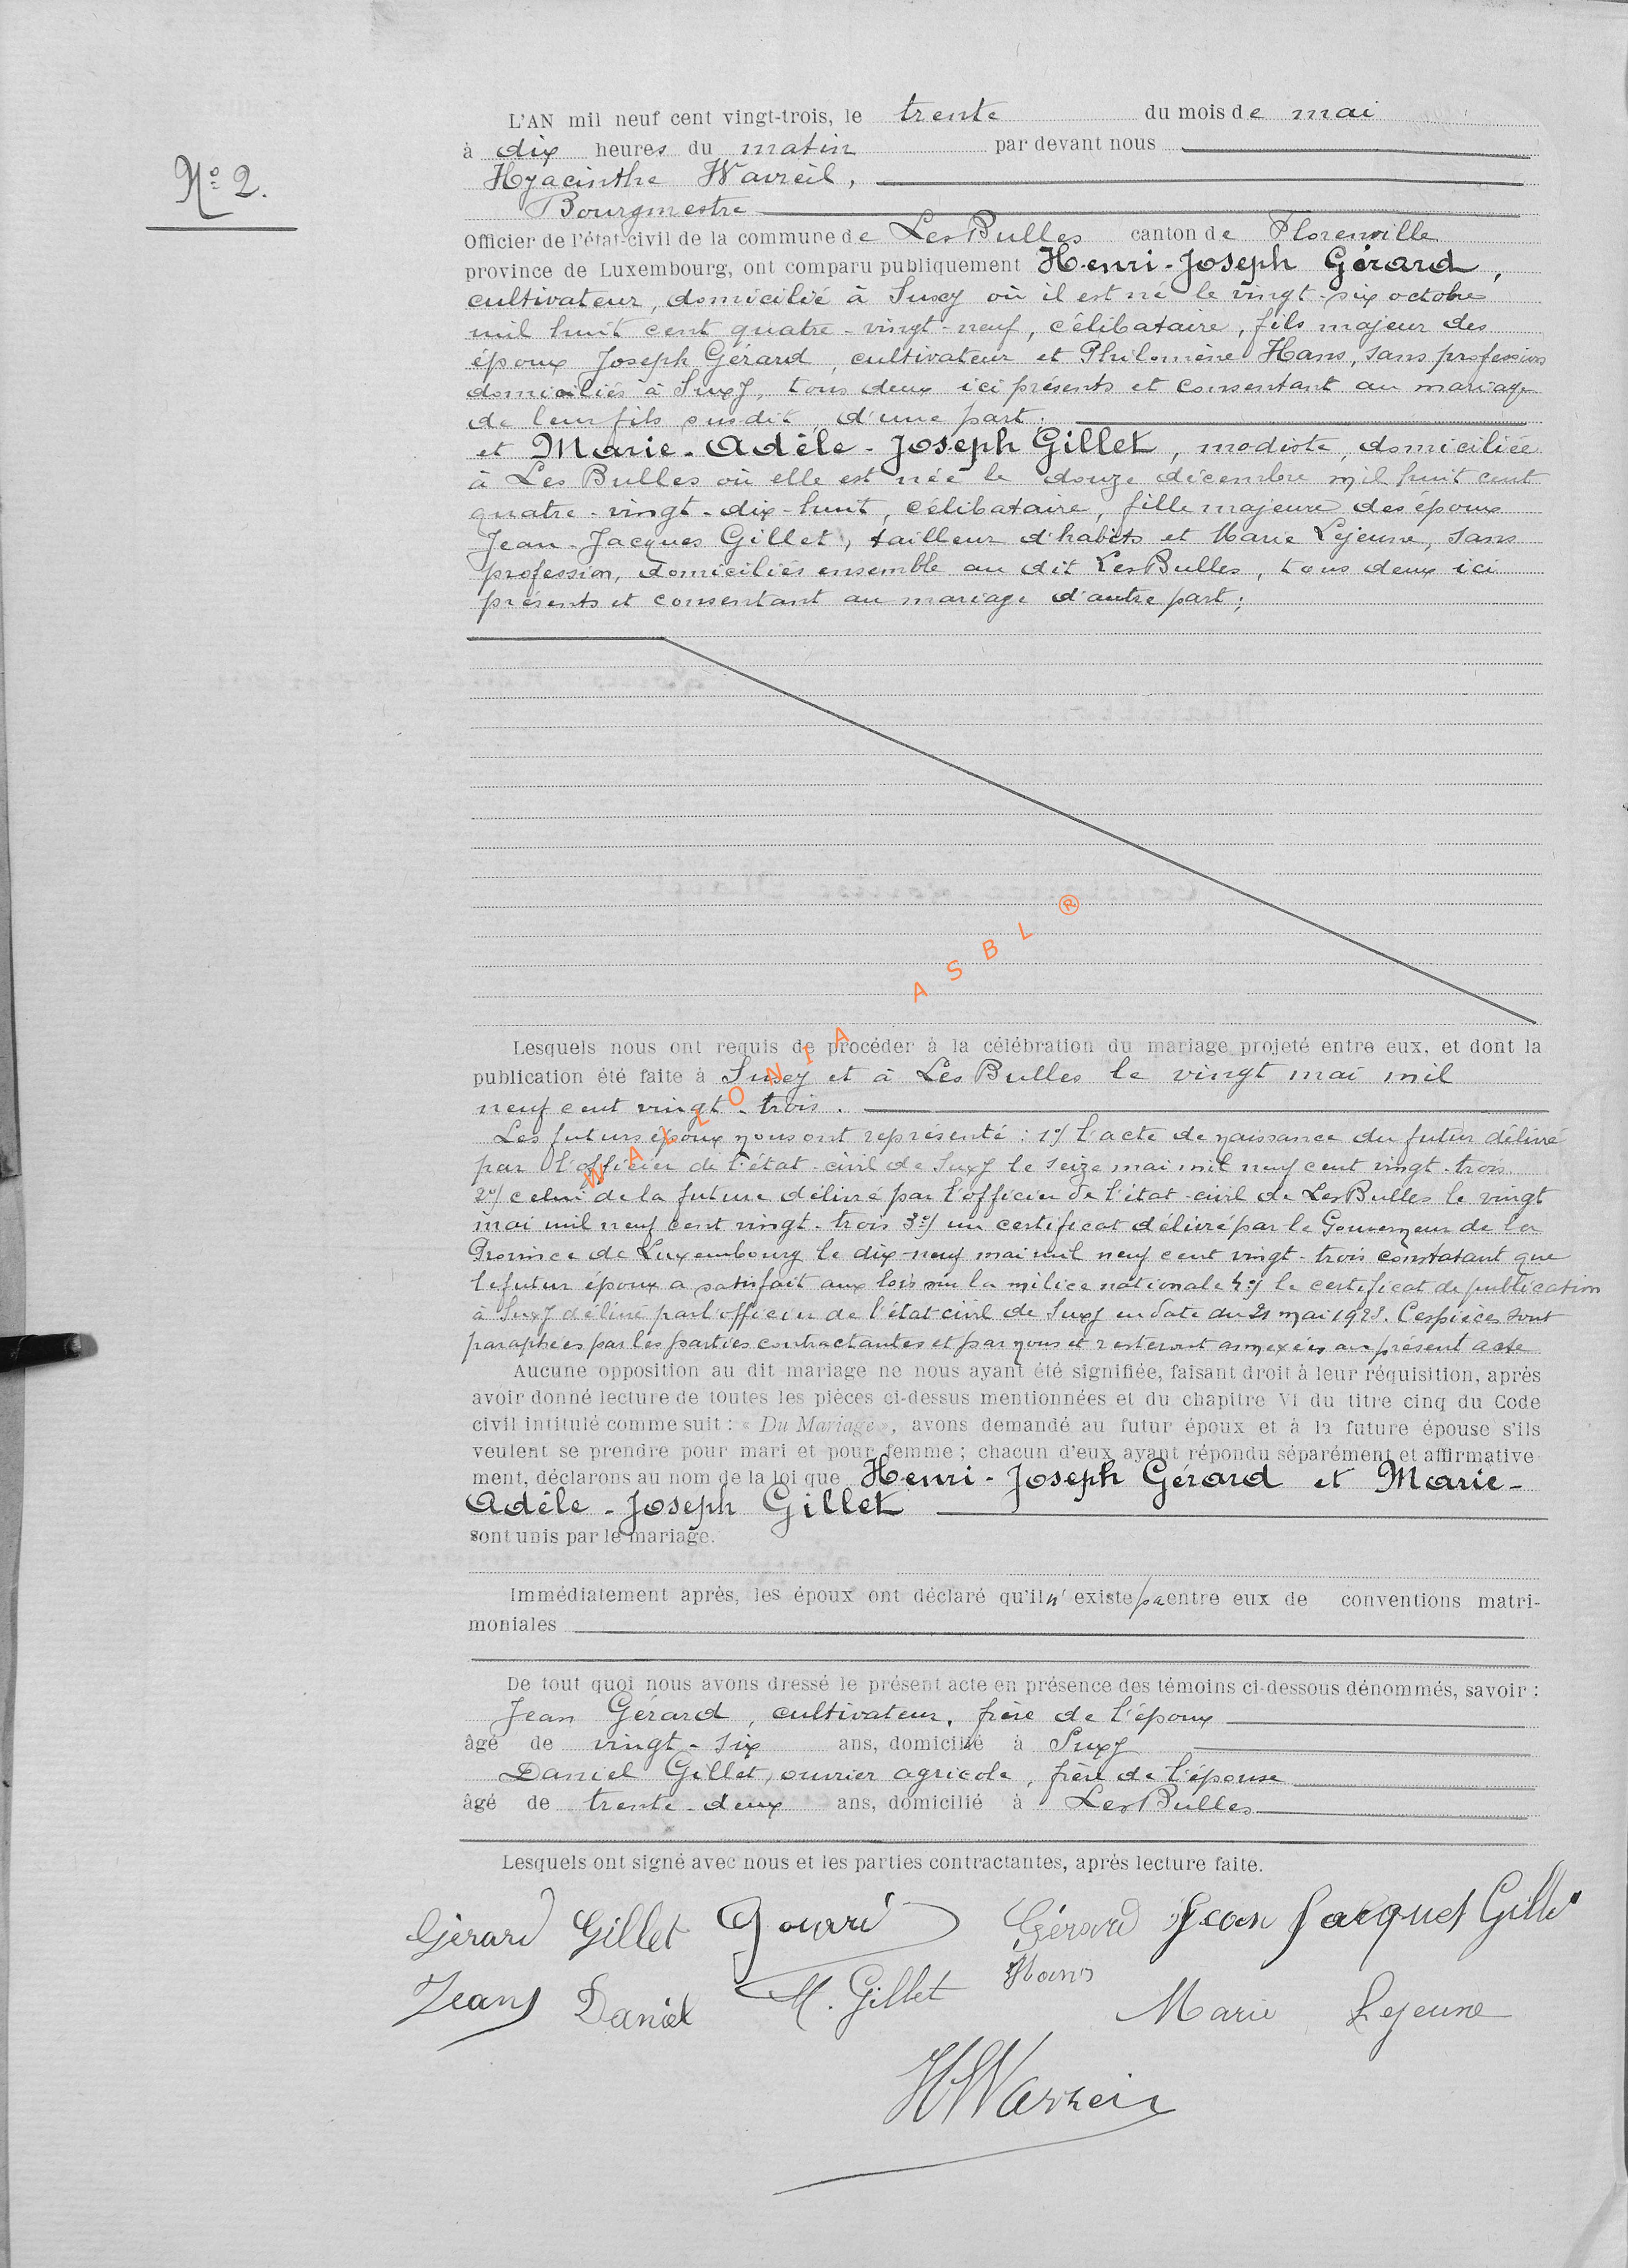 N° 2.
L'AN mil neuf cent vingt-trois, le trente du mois de mai
à dix heures du matin par devant nous
Hyacinthe Wavreil,
Bourgmestre
Officier de l'état-civil de la commune de Les Bulles canton de Florenville
province de Luxembourg, ont comparu publiquement Henri-Joseph Gérard,
cultivateur, domicilié à Suxy où il est né le vingt-six octobre
mil huit cent quatre-vingt-neuf, célibataire, fils majeur des
époux Joseph Gérard, cultivateur et Philomène Hans, sans profession
domiciliés à Suxy, tous deux ici présents et consentant au mariage
de leur fils susdit, d'une part;
et Marie-Adèle-Joseph Gillet, modiste, domiciliée
à Les Bulles où elle est née le douze décembre mil huit cent
quatre-vingt-dix-huit, célibataire, fille majeure des époux
Jean-Jacques Gillet, tailleur d'habits et Marie Lejeune, sans
profession, domiciliés ensemble au dit Les Bulles, tous deux ici
présents et consentant au mariage d'autre part;
Lesquels nous ont requis de procéder à la célébration du mariage projeté entre eux, et dont la
publication été faite à Suxy et à Les Bulles le vingt mai mil
neuf cent vingt-trois.
Les futurs époux nous ont représenté : 1°/ l'acte de naissance du futur délivré
par l'officier de l'état-civil de Suxy le seize mai mil neuf cent vingt-trois
2°/ celui de la future délivré par l'officier de l'état-civil de Les Bulles le vingt
mai mil neuf cent vingt-trois 3°/ un certificat délivré par le Gouverneur de la
Province de Luxembourg le dix-neuf mai mil neuf cent vingt-trois constatant que
le futur époux a satisfait aux lois sur la milice nationale 4°/ le certificat de publication
à Suxy délivré par l'officier de l'état civil de Suxy en date du 21 mai 1923. Ces pièces sont
paraphées par les parties contractantes et par nous et resteront annexées au présent acte
Aucune opposition au dit mariage ne nous ayant été signifiée, faisant droit à leur réquisition, après
avoir donné lecture de toutes les pièces ci-dessus mentionnées et du chapitre VI du titre cinq du Code
civil intitulé comme suit : « Du Mariage », avons demandé au futur époux et à la future épouse s'ils
veulent se prendre pour mari et pour femme ; chacun d'eux ayant répondu séparément et affirmative
ment, déclarons au nom de la loi que Henri-Joseph Gérard et Marie-
Adèle-Joseph Gillet
sont unis par le mariage.
Immédiatement après, les époux ont déclaré qu'il n'existe pas entre eux de conventions matri-
moniales
De tout quoi nous avons dressé le présent acte en présence des témoins ci-dessous dénommés, savoir :
Jean Gérard, cultivateur, frère de l'époux
âgé de vingt-six ans, domicilié à Suxy
Daniel Gillet, ouvrier agricole, frère de l'épouse
âgé de trente-deux ans, domicilié à Les Bulles
Lesquels ont signé avec nous et les parties contractantes, après lecture faite.
Gérard Gillet Gérard Jean Jacques Gillet
Jean Daniel M. Gillet Hans Marie Lejeune
HWavreil
WALLONIA ASBL ®